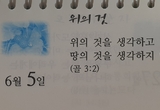 위의 것
위의 것을 생각하고
땅의 것을 생각하지
(골 3:2)
6월 5일